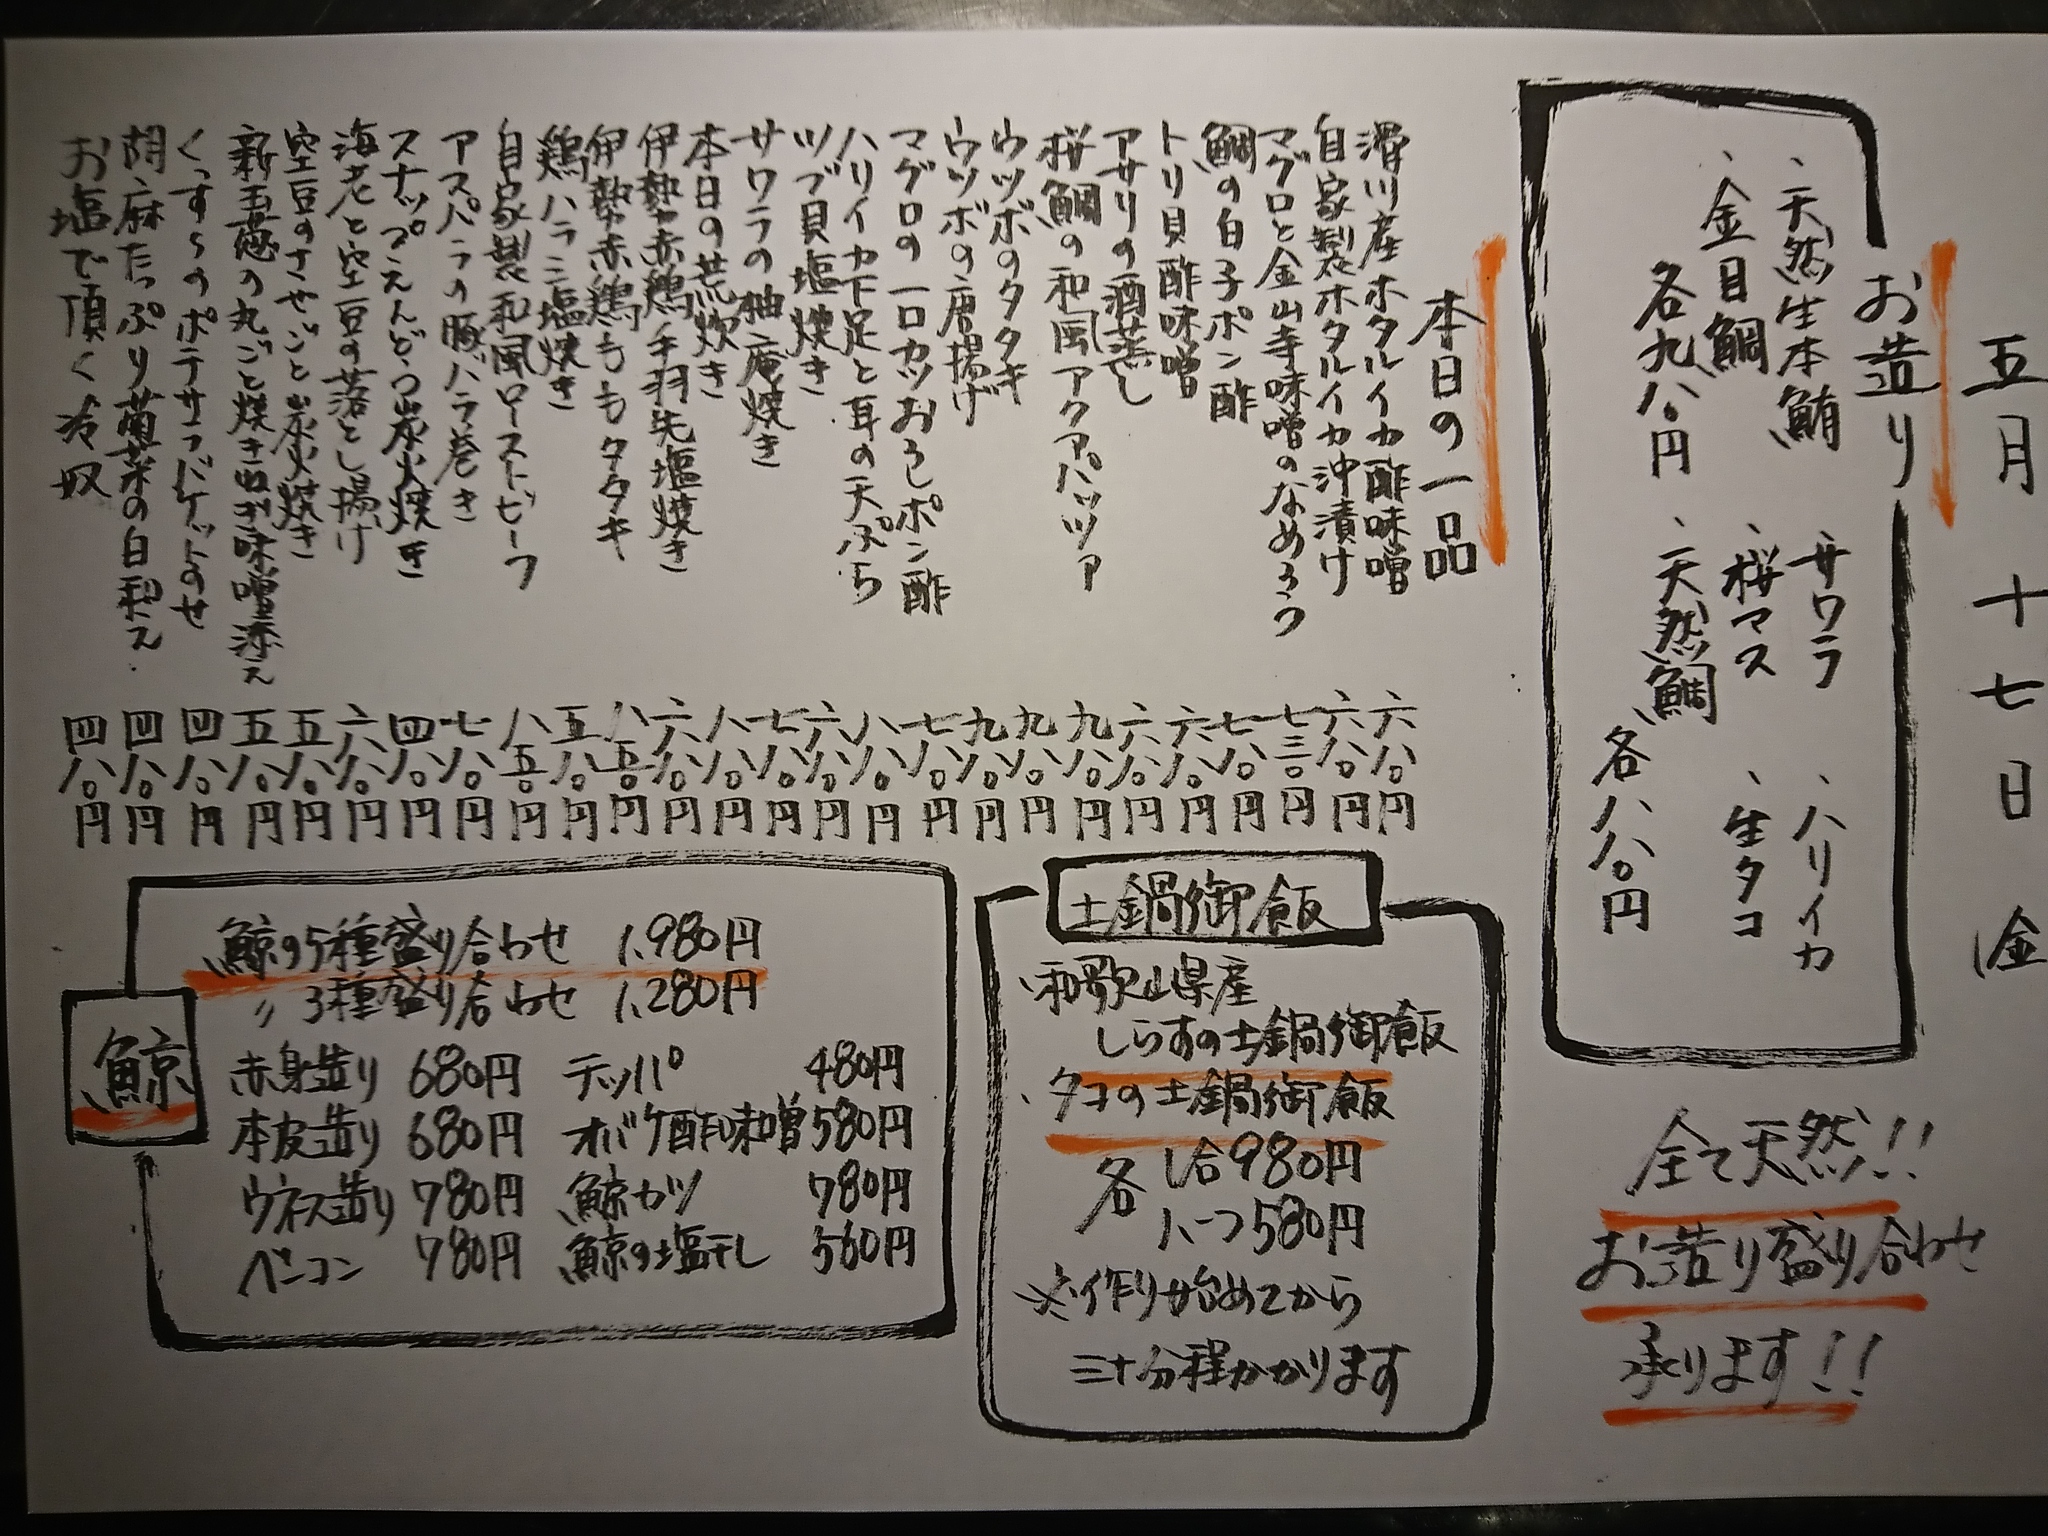 五月十七日金
お造り
、天然生本鮪
、金目鯛
各九八〇円
、サワラ
、桜マス
、天然鯛
、ハリイカ
、生タコ
各八八〇円
全て天然!!
お造り盛り合わせ
承ります!!
本日の一品
滑川産ホタルイカ酢味噌 六八〇円
自家製ホタルイカ沖漬け 六八〇円
マグロと金山寺味噌のなめろう 七三〇円
鯛の白子ポン酢 七八〇円
トリ貝酢味噌 六八〇円
アサリの酒蒸し 六八〇円
桜鯛の和風アクアパッツァ 九八〇円
ウツボのタタキ 九八〇円
ウツボの唐揚げ 九八〇円
マグロの一口カツおろしポン酢 七八〇円
ハリイカ下足と耳の天ぷら 八八〇円
ツブ貝塩焼き 六八〇円
サワラの柚庵焼き 七八〇円
本日の荒炊き 八八〇円
伊勢赤鶏手羽先塩焼き 六八〇円
伊勢赤鶏ももタタキ 八五〇円
鶏ハラミ塩焼き 五八〇円
自家製和風ローストビーフ 八五〇円
アスパラの豚バラ巻き 七八〇円
スナップえんどう炭火焼き 四八〇円
海老と空豆の落とし揚げ 六八〇円
空豆のさやごと炭火焼き 五八〇円
新玉葱の丸ごと焼き 味噌添え 五八〇円
くっすらのポテサラバケットのせ 四八〇円
胡麻たっぷり菊菜の白和え 四八〇円
お塩で頂く冷奴 四八〇円
土鍋御飯
、和歌山県産
しらすの土鍋御飯
、タコの土鍋御飯
各 1合980円
ハーフ580円
※作り始めてから
三十分程かかります
鯨
鯨の5種盛り合わせ 1,980円
〃 3種盛り合わせ 1,280円
赤身造り 680円 テッパ 480円
本皮造り 680円 オバケ酢味噌 580円
ウネス造り 780円 鯨カツ 780円
ベーコン 780円 鯨の塩干し 560円